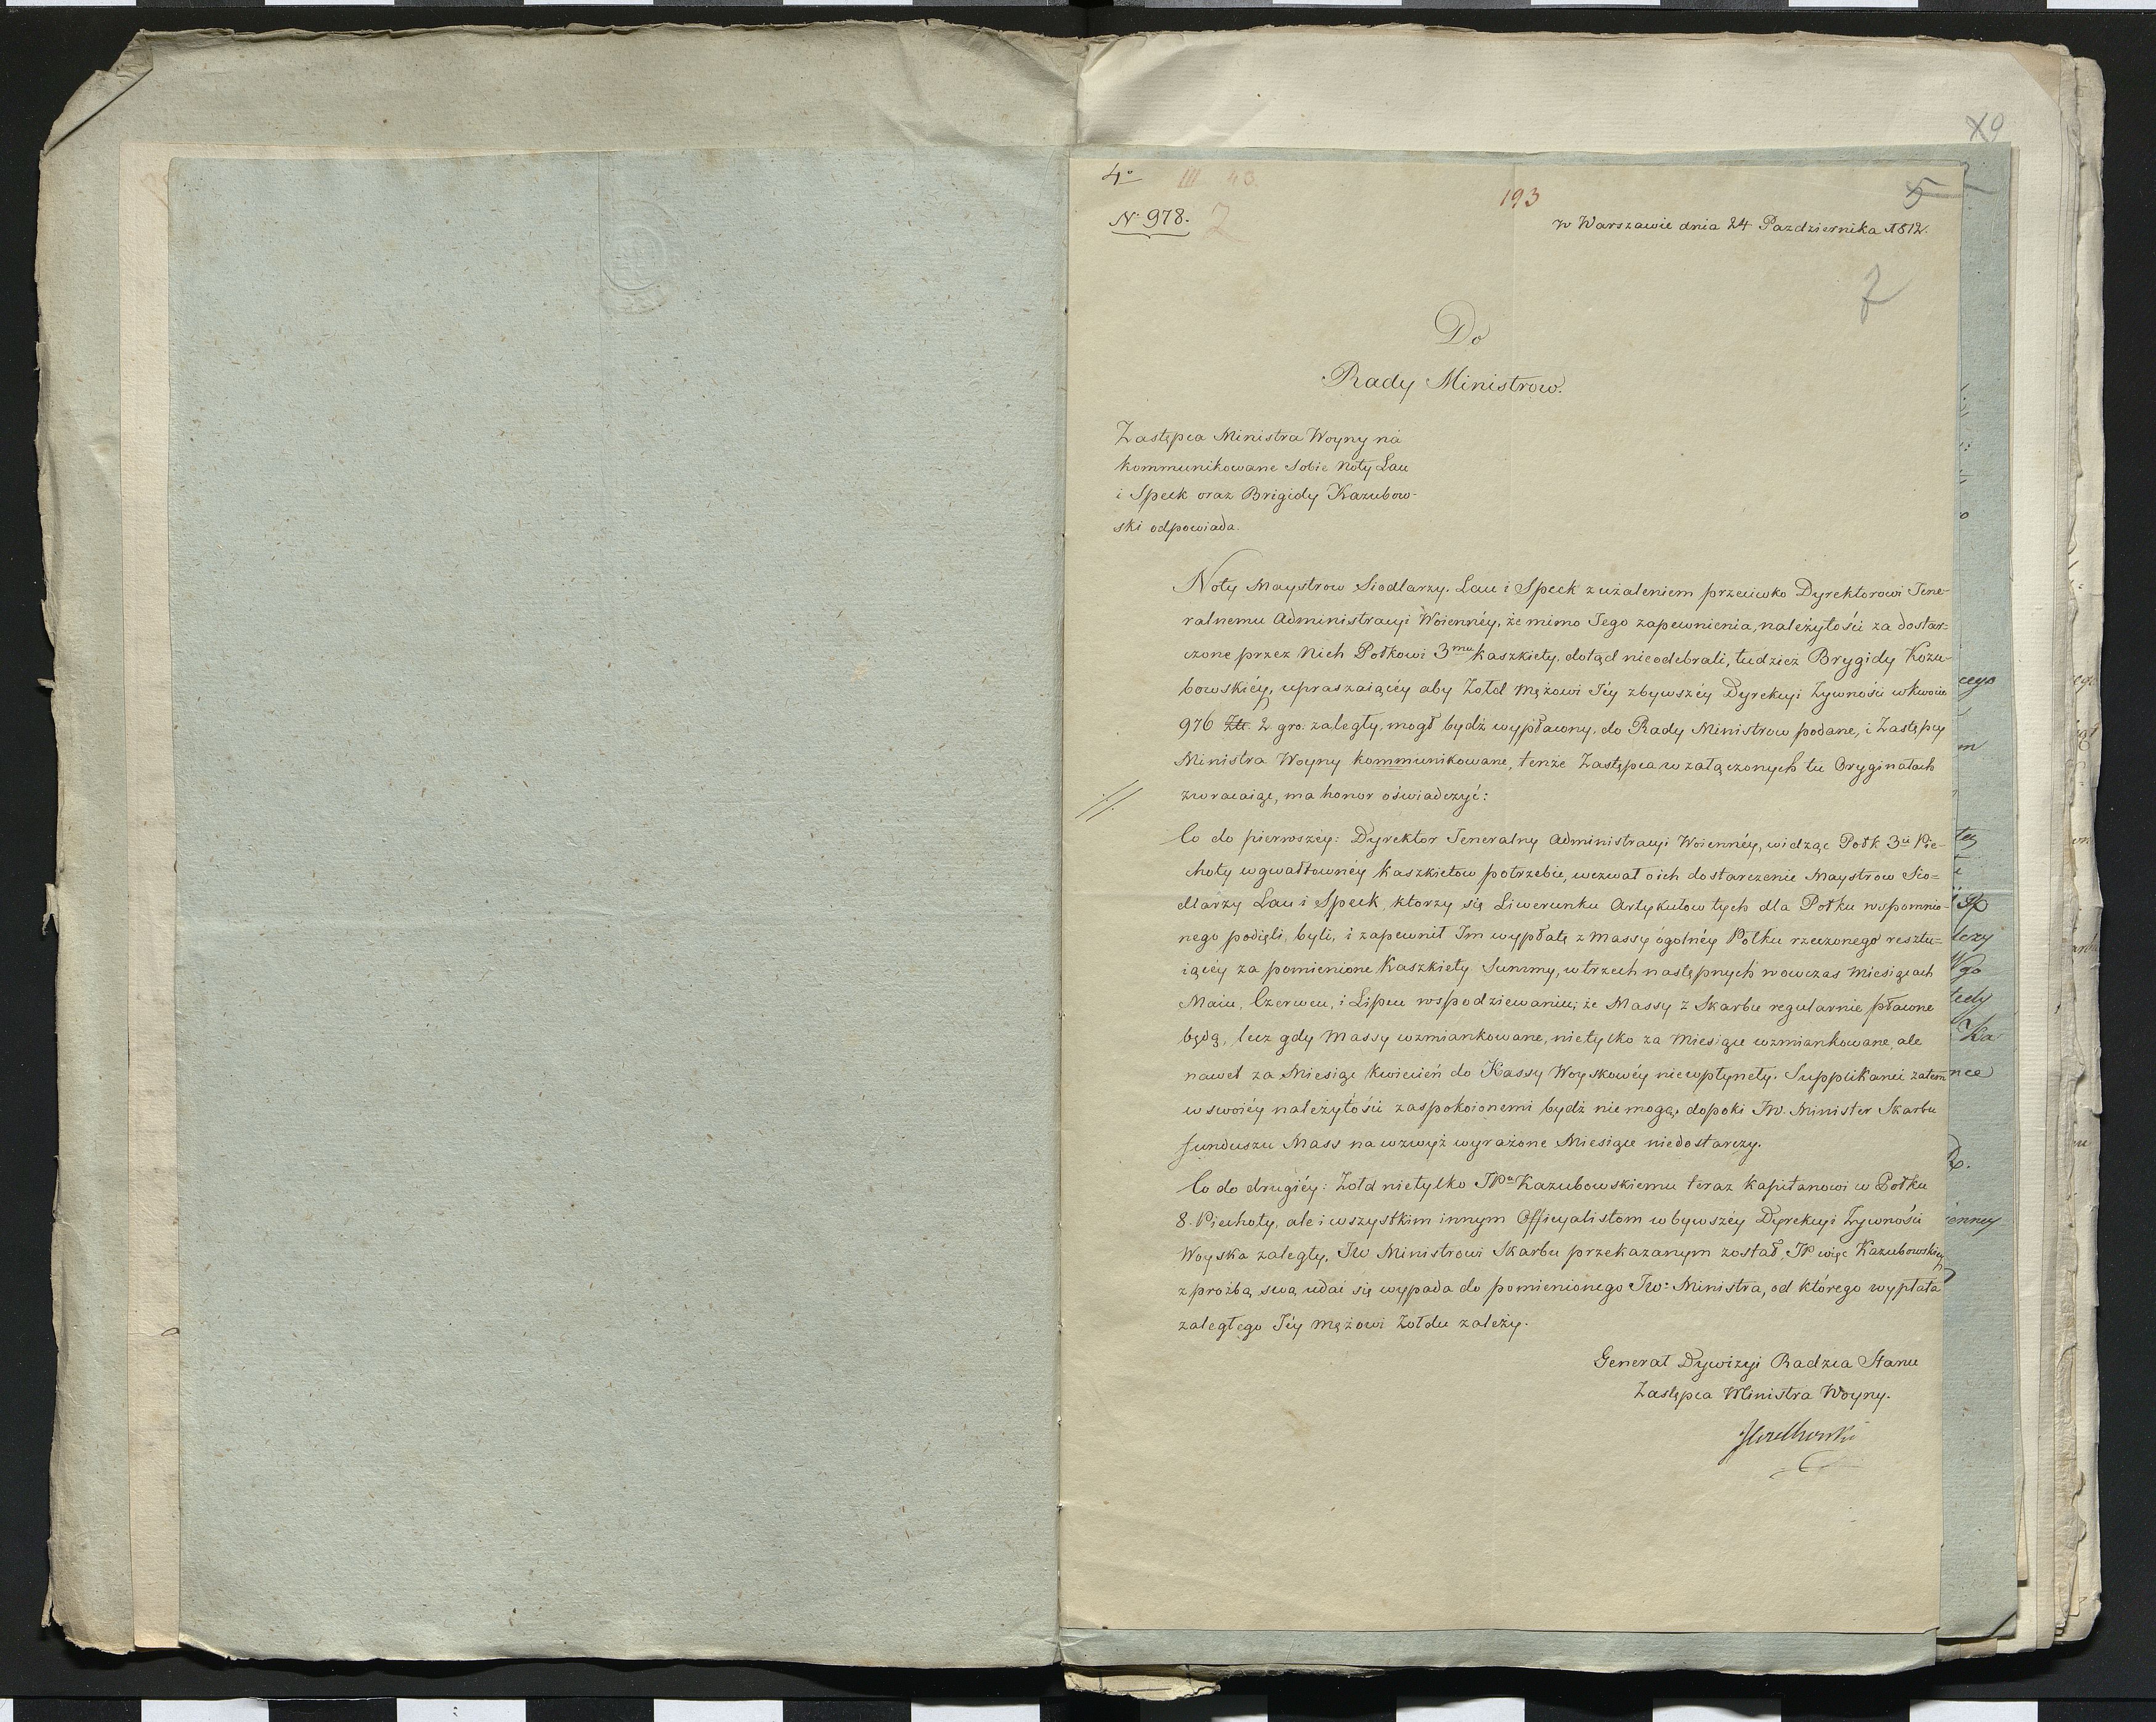 X9
4º III 43.
193
5
Nº 978. 2
w Warszawie dnia 24 Pazdziernika 1812.
7
Do
Rady Ministrow.
Zastępca Ministra Woyny na
kommunikowane Sobie Noty Lau
i Speck oraz Brigidy Kazubow-
ski odpowiada.
Noty Maystrow Siodlarzy. Lau i Speck z użaleniem przeciwko Dyrektorowi Jene-
ralnemu Administracyi Woienney, że mimo Jego zapewnienia, należytości za dostar=
czone przez Nich Półkowi 3mu kaszkiety, dotąd nieodebrali, tudzież Brygidy Kozu-
bowskiéy, upraszaiącéy aby Żołd Mężowi Jéy zbywszéy Dyrekcyi Żywności wkwocie
976 Złl. 2 gro. zaległy, mogł bydź wypłacony, do Rady Ministrow podane, i Zastępcy
Ministra Woyny kommunikowane, tenże Zastępca w załączonych tu Oryginałach
zwracaiąc, ma honor oświadczyć:
Co do pierwszéy: Dyrektor Jeneralny Administracyi Woiennéy, widząc Połk 3ci Pie-
choty w gwałtownéy kaszkietow potrzebie, wezwał o ich dostarczenie Maystrow Sio=
dlarzy Lau i Speck, ktorzy się Liwerunku Artykułow tych dla Połku wspomnio-
nego podięli byli, i zapewnił Im wypłatę z Massy ogólnéy Półku rzeczonego resztu=
iącéy za pomienione Kaszkiety Summy, w trzech następnych wowczas Miesiącach
Maiu, Czerwcu, i Lipcu wspodziewaniu; że Massy z Skarbu regularnie płacone
będą, lecz gdy Massy wzmiankowane, nietylko za Miesiące wzmiankowane, ale
nawet za Miesiąc Kwiecień do Kassy Woyskowéy niewpłynęły. Supplikanci zatem
w swoiéy należytości zaspokoionemi bydź nie mogą, dopoki JW. Minister Skarbu
funduszu Mass na wzwyż wyrażone Miesiące niedostarczy.
Co do drugiéy: Żołd nietylko JPu Kazubowskiemu teraz Kapitanowi w Połku
8. Piechoty, ale i wszystkim innym Officyalistom w bywszéy Dyrekcyi Żywności
Woyska zaległy, JW Ministrowi Skarbu przekazanym został, JP więc Kazubowskiey
z prozbą swą udać się wypada do pomienionego JW. Ministra, od którego wypłata
zaległego Jéy Mężowi Żołdu zależy.
Generał Dywizyi Radzca Stanu
Zastępca Ministra Woyny.